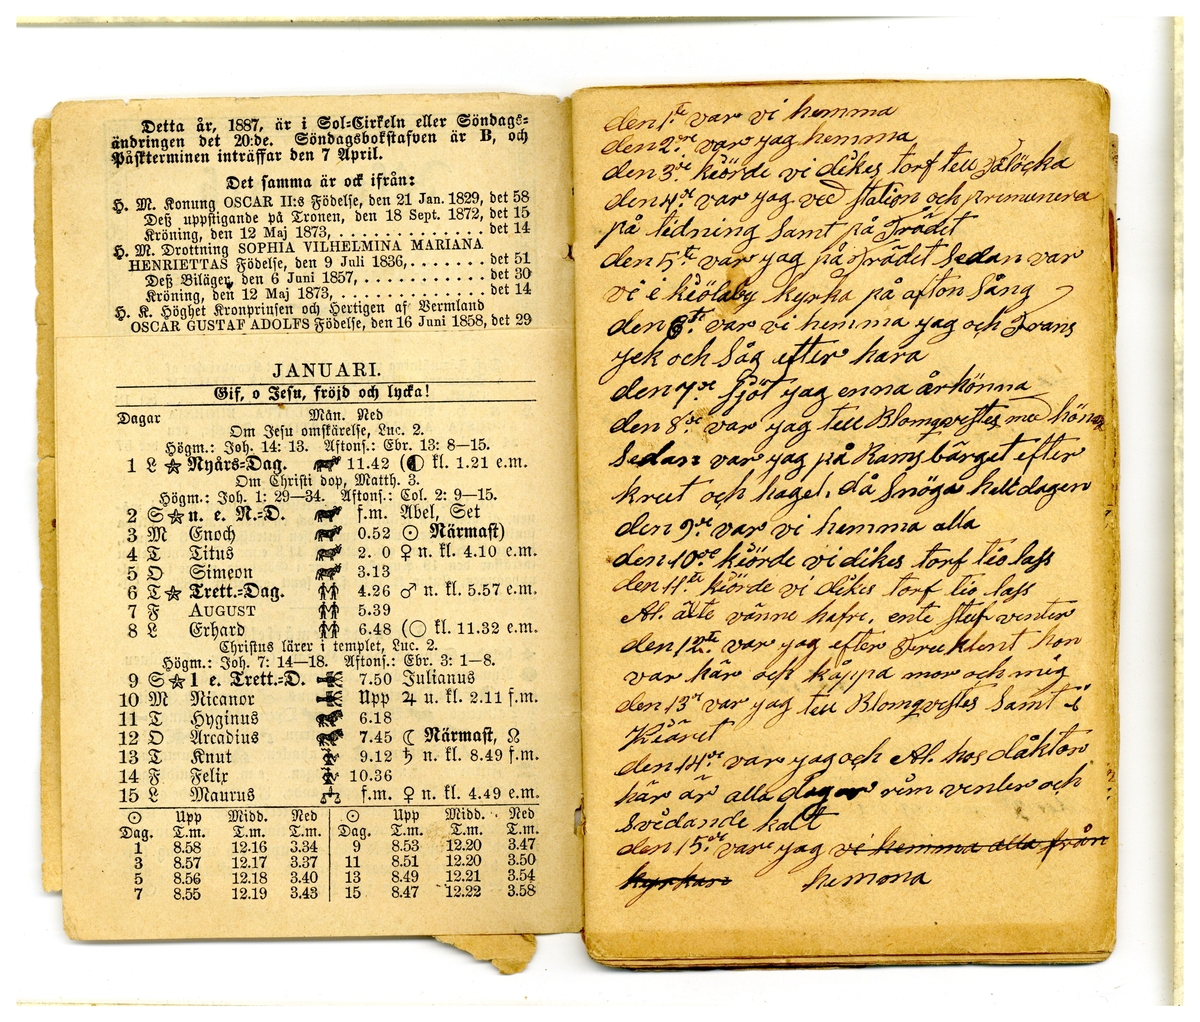 Detta år, 1887, är i Sol-Cirkeln eller Söndags-
ändringen det 20:de. Söndagsbokstafven är B, och
Påskterminen inträffar den 7 April.
Det samma är ock ifrån:
H. M. Konung OSCAR II:s Födelse, den 21 Jan. 1829, det 58
Deß uppstigande på Tronen, den 18 Sept. 1872, det 15
Kröning, den 12 Maj 1873, . . . . . . . . . . . . . det 14
H. M. Drottning SOPHIA VILHELMINA MARIANA
HENRIETTAS Födelse, den 9 Juli 1836, . . . . . . . det 51
Deß Biläger, den 6 Juni 1857, . . . . . . . . . . . det 30
Kröning, den 12 Maj 1873, . . . . . . . . . . . . . det 14
H. K. Höghet Kronprinsen och Hertigen af Vermland
OSCAR GUSTAF ADOLFS Födelse, den 16 Juni 1858, det 29
JANUARI.
Gif, o Jesu, fröjd och lycka!
Dagar Mån. Ned
Om Jesu omskärelse, Luc. 2.
Högm.: Joh. 14: 13. Aftons.: Ebr. 13: 8—15.
1 L ☆ Nyårs-Dag. 11.42 (◐ kl. 1.21 e.m.
Om Christi dop, Matth. 3.
Högm.: Joh. 1: 29—34. Aftons.: Col. 2: 9—15.
2 S ☆ n. e. N.-D. f.m. Abel, Set
3 M Enoch 0.52 ☉ Närmast)
4 T Titus 2. 0 ♀ n. kl. 4.10 e.m.
5 O Simeon 3.13
6 T ☆ Trett.-Dag. 4.26 ♂ n. kl. 5.57 e.m.
7 F AUGUST 5.39
8 L Erhard 6.48 (◯ kl. 11.32 e.m.
Christus lärer i templet, Luc. 2.
Högm.: Joh. 7: 14—18. Aftons.: Ebr. 3: 1—8.
9 S ☆ 1 e. Trett.-D. 7.50 Julianus
10 M Nicanor Upp ♃ u. kl. 2.11 f.m.
11 T Hyginus 6.18
12 O Arcadius 7.45 ☾ Närmast, ☊
13 T Knut 9.12 ♄ n. kl. 8.49 f.m.
14 F Felix 10.36
15 L Maurus f.m. ♀ n. kl. 4.49 e.m.
☉ Upp Midd. Ned ☉ Upp Midd. Ned
Dag. T.m. T.m. T.m. Dag. T.m. T.m. T.m.
1 8.58 12.16 3.34 9 8.53 12.20 3.47
3 8.57 12.17 3.37 11 8.51 12.20 3.50
5 8.56 12.18 3.40 13 8.49 12.21 3.54
7 8.55 12.19 3.43 15 8.47 12.22 3.58
den 1:te var vi hemma
den 2:re var jag hemma
den 3:je kiörde vi dikes torf till
den 4:de var jag ved station och premunera
på tidning Samt på Trädet
den 5:te var jag på Trädet Sedan var
vi i Kiölaby kyrka på afton Sång
den 6:te var vi hemma jag och Frans
jek och Såg efter hara
den 7:de sjöt jag enna årkönna
den 8:de var jag till Blomqvistes ma
Sedan var jag på Rams bärget efter
krut och hagel, då Snöga hell dagen
den 9:de var vi hemma alla
den 10:de kiörde vi dikes torf tio lass
den 11:te kiörde vi dikes torf tio lass
Al. älte vänne hafre, ente stif venter
den 12:te var jag efter hon
var här och kåppa mor och mig
den 13:de var jag till Blomqvistes Samt i
Kiäret
den 14:de var jag och Al. hos dåktor
här är alla dagar rim venter och
Svidande kalt
den 15:de var jag vi hemma alla från
kyrkan hemma